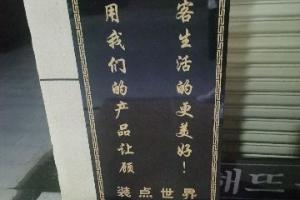 用我们的产品让顾
客生活的更美好!
装点世界